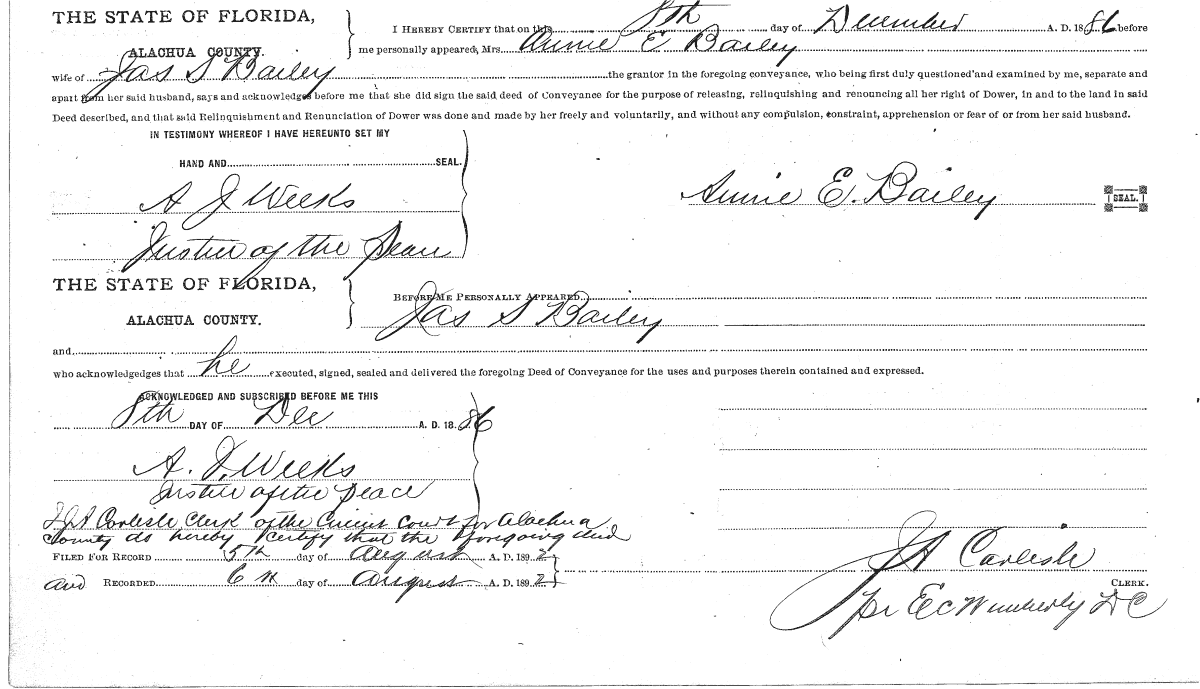 THE STATE OF FLORIDA,
ALACHUA COUNTY.
I HEREBY CERTIFY that on this 8th day of December A. D. 1886 before
me personally appeared, Mrs. Annie E Bailey
wife of Jas S Bailey the grantor in the foregoing conveyance, who being first duly questioned and examined by me, separate and
apart from her said husband, says and acknowledges before me that she did sign the said deed of Conveyance for the purpose of releasing, relinquishing and renouncing all her right of Dower, in and to the land in said
Deed described, and that said Relinquishment and Renunciation of Dower was done and made by her freely and voluntarily, and without any compulsion, constraint, apprehension or fear of or from her said husband.
IN TESTIMONY WHEREOF I HAVE HEREUNTO SET MY
HAND AND SEAL.
A J Weeks
Justice of the Peace
Annie E. Bailey SEAL.
THE STATE OF FLORIDA,
ALACHUA COUNTY.
BEFORE ME PERSONALLY APPEARED
Jas S Bailey
and
who acknowledgedges that he executed, signed, sealed and delivered the foregoing Deed of Conveyance for the uses and purposes therein contained and expressed.
ACKNOWLEDGED AND SUBSCRIBED BEFORE ME THIS
8th DAY OF Dec A. D. 18 86
A. J. Weeks
Justice of the Peace
I J A Carlisle Clerk of the Circuit Court for Alachua
County do hereby certify that the foregoing deed
FILED FOR RECORD 5th day of August A. D. 189 2
and RECORDED 6th day of August A. D. 189 2
J A Carlisle
CLERK.
pr E C Wimberly D C